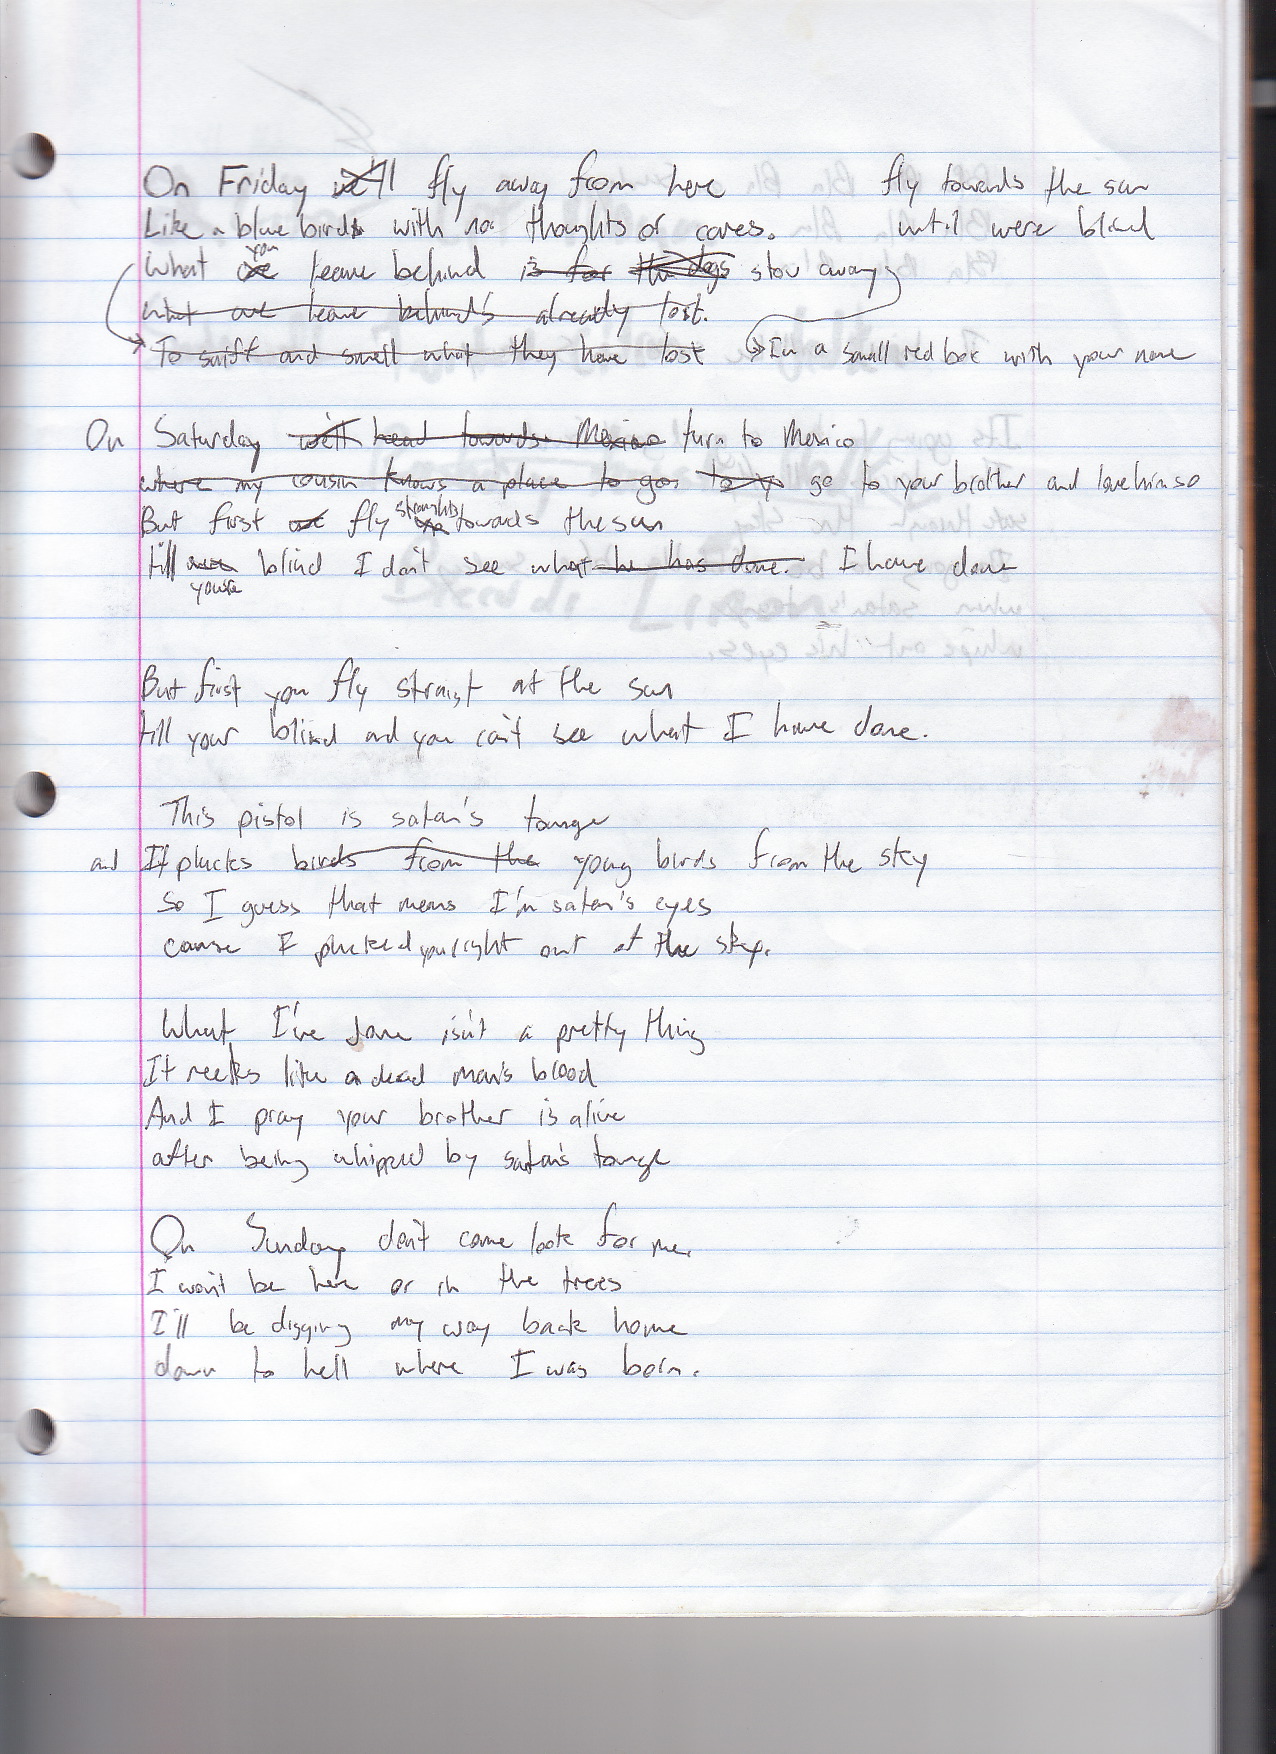 On Friday we'll fly away from here fly towards the sun
Like a blue birds with no thoughts or cares. until were blind
you
What we leave behind is for the dogs stow away
what we leave behind's already lost.
To sniff and smell what they have lost In a small red box with your name
On Saturday we'll head towards Mexico turn to Mexico
where my cousin knows a place to go. to go to your brother and love him so
But first we fly straights towards the sun
till were blind I don't see what he has done. I have done
youre
But first you fly straigt at the sun
till your blind and you can't see what I have done.
This pistol is satan's tounge
and It plucks birds from the young birds from the sky
So I guess that means I'm satan's eyes
cause I plucked you right out of the sky.
What I've done isn't a pretty thing
It reeks like a dead man's blood
And I pray your brother is alive
after being whipped by satan's tounge
On Sunday don't come look for me.
I won't be here or in the trees
I'll be digging my way back home
down to hell where I was born.